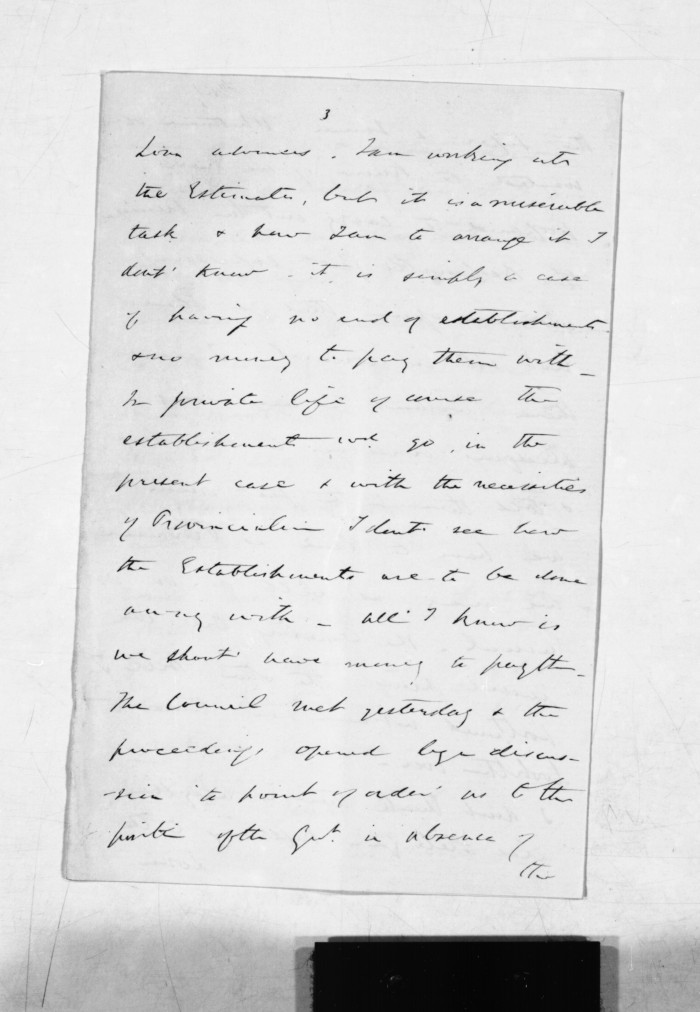 3
Loan advances. I am working at
the Estimates, but it is a miserable
task & how I am to arrange it I
don't know. it is simply a case
of having no end of establishments
& no money to pay them with –
In private life of course the
establishment wd. go, in the
present case & with the necessities
of Provincialism I dont see how
the Establishments are to be done
away with – all I know is
we shant have money to pay th–
The Council met yesterday & the
proceedings opened by a discus-
sion 'to point of order' as to the
positn of the Govt. in absence of
the